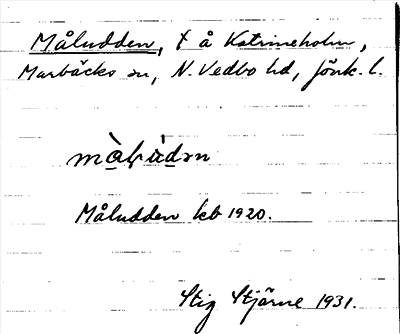 Måludden, t å Katrineholm,
Marbäcks sn, N. Vedbo hd, Jönk. l.
Måludden kb 1920.
Stig Stjärne 1931.